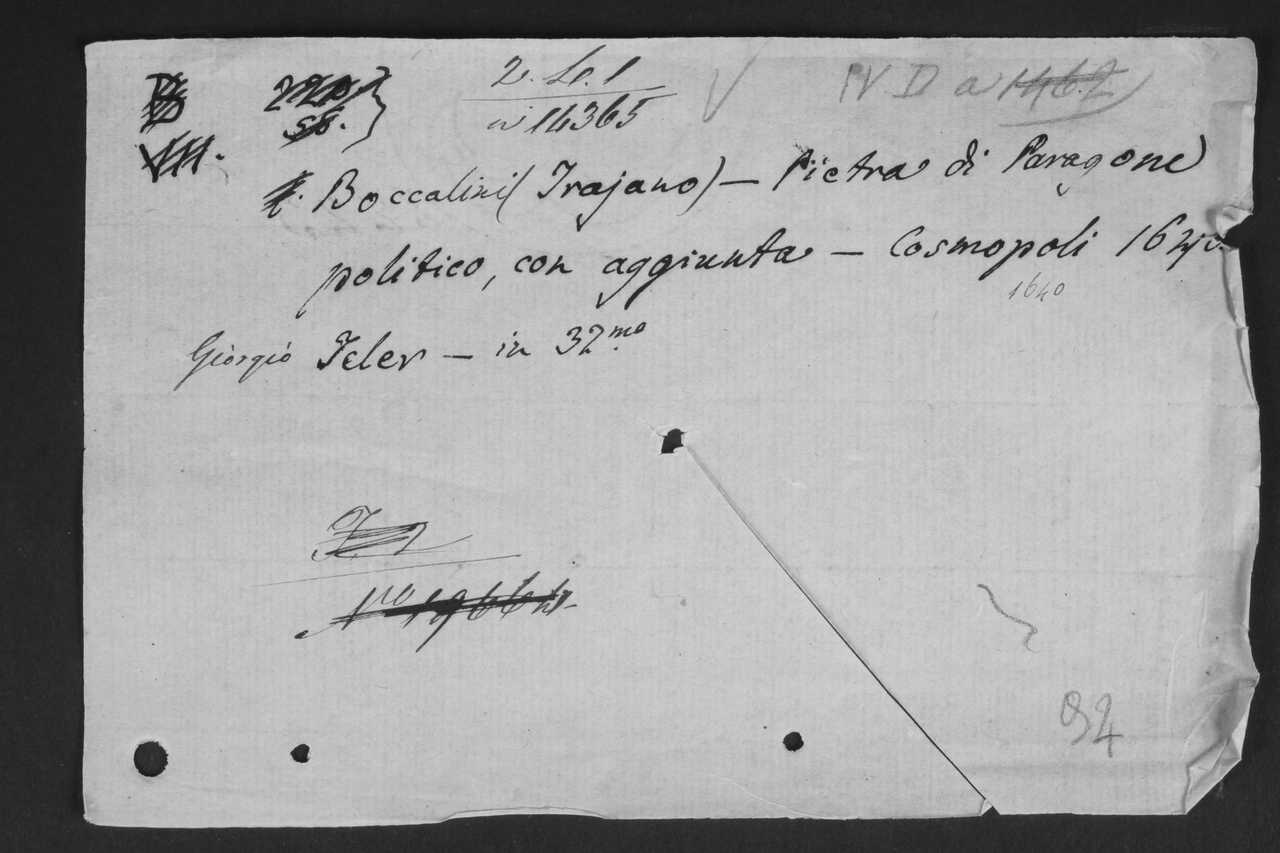 2. Le. 1
n 14365
IV D a 1467
VIII.
Boccalini (Trajano) – Pietra di Paragone
politico, con aggiunta – Cosmopoli
1640
Giorgio Teler – in 32.mo
94